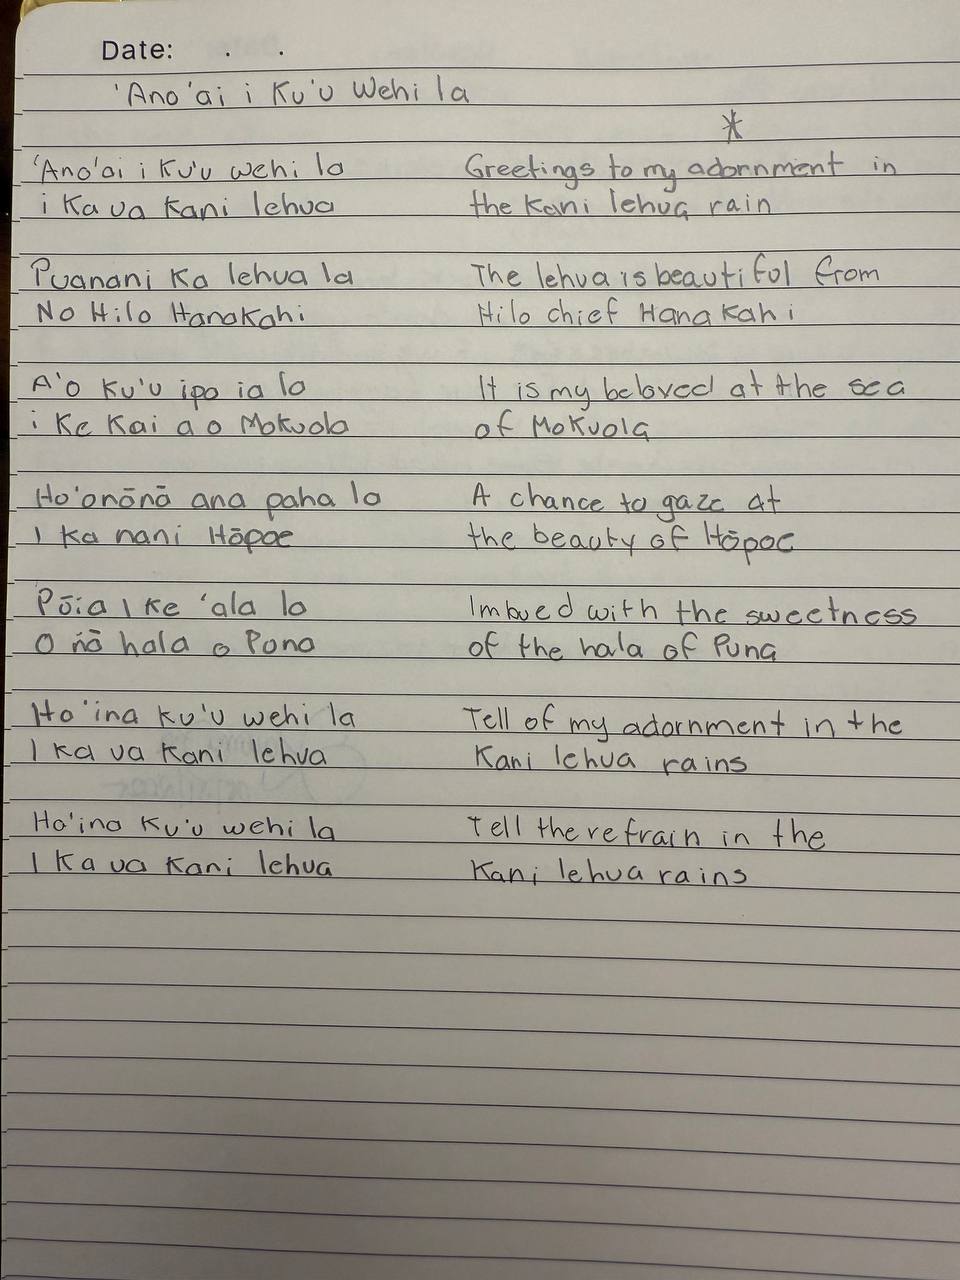 Date: . .
'Ano'ai i Ku'u Wehi la
*
'Ano'ai i Ku'u wehi la
i Ka ua Kani lehua
Greetings to my adornment in
the Kani lehua rain
Puanani Ka lehua la
No Hilo Hanakahi
The lehua is beautiful from
Hilo chief Hanakahi
A'o Ku'u ipo ia la
i Ke Kai a o Mokuola
It is my beloved at the sea
of Mokuola
Ho'onānā ana paha la
I ka nani Hōpoe
A chance to gaze at
the beauty of Hōpoe
Pōia I Ke 'ala la
O nā hala o Puna
Imbued with the sweetness
of the hala of Puna
Ha'ina Ku'u wehi la
I Ka ua Kani lehua
Tell of my adornment in the
Kani lehua rains
Ha'ina Ku'u wehi la
I Ka ua Kani lehua
Tell the refrain in the
Kani lehua rains